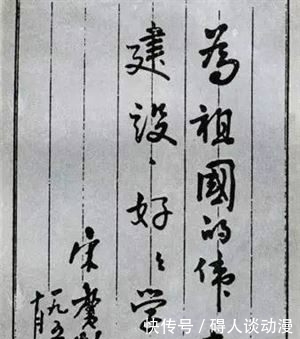 為祖國的偉
建設、好々学
宋慶
一九五
十月
快传号／碍人谈动漫